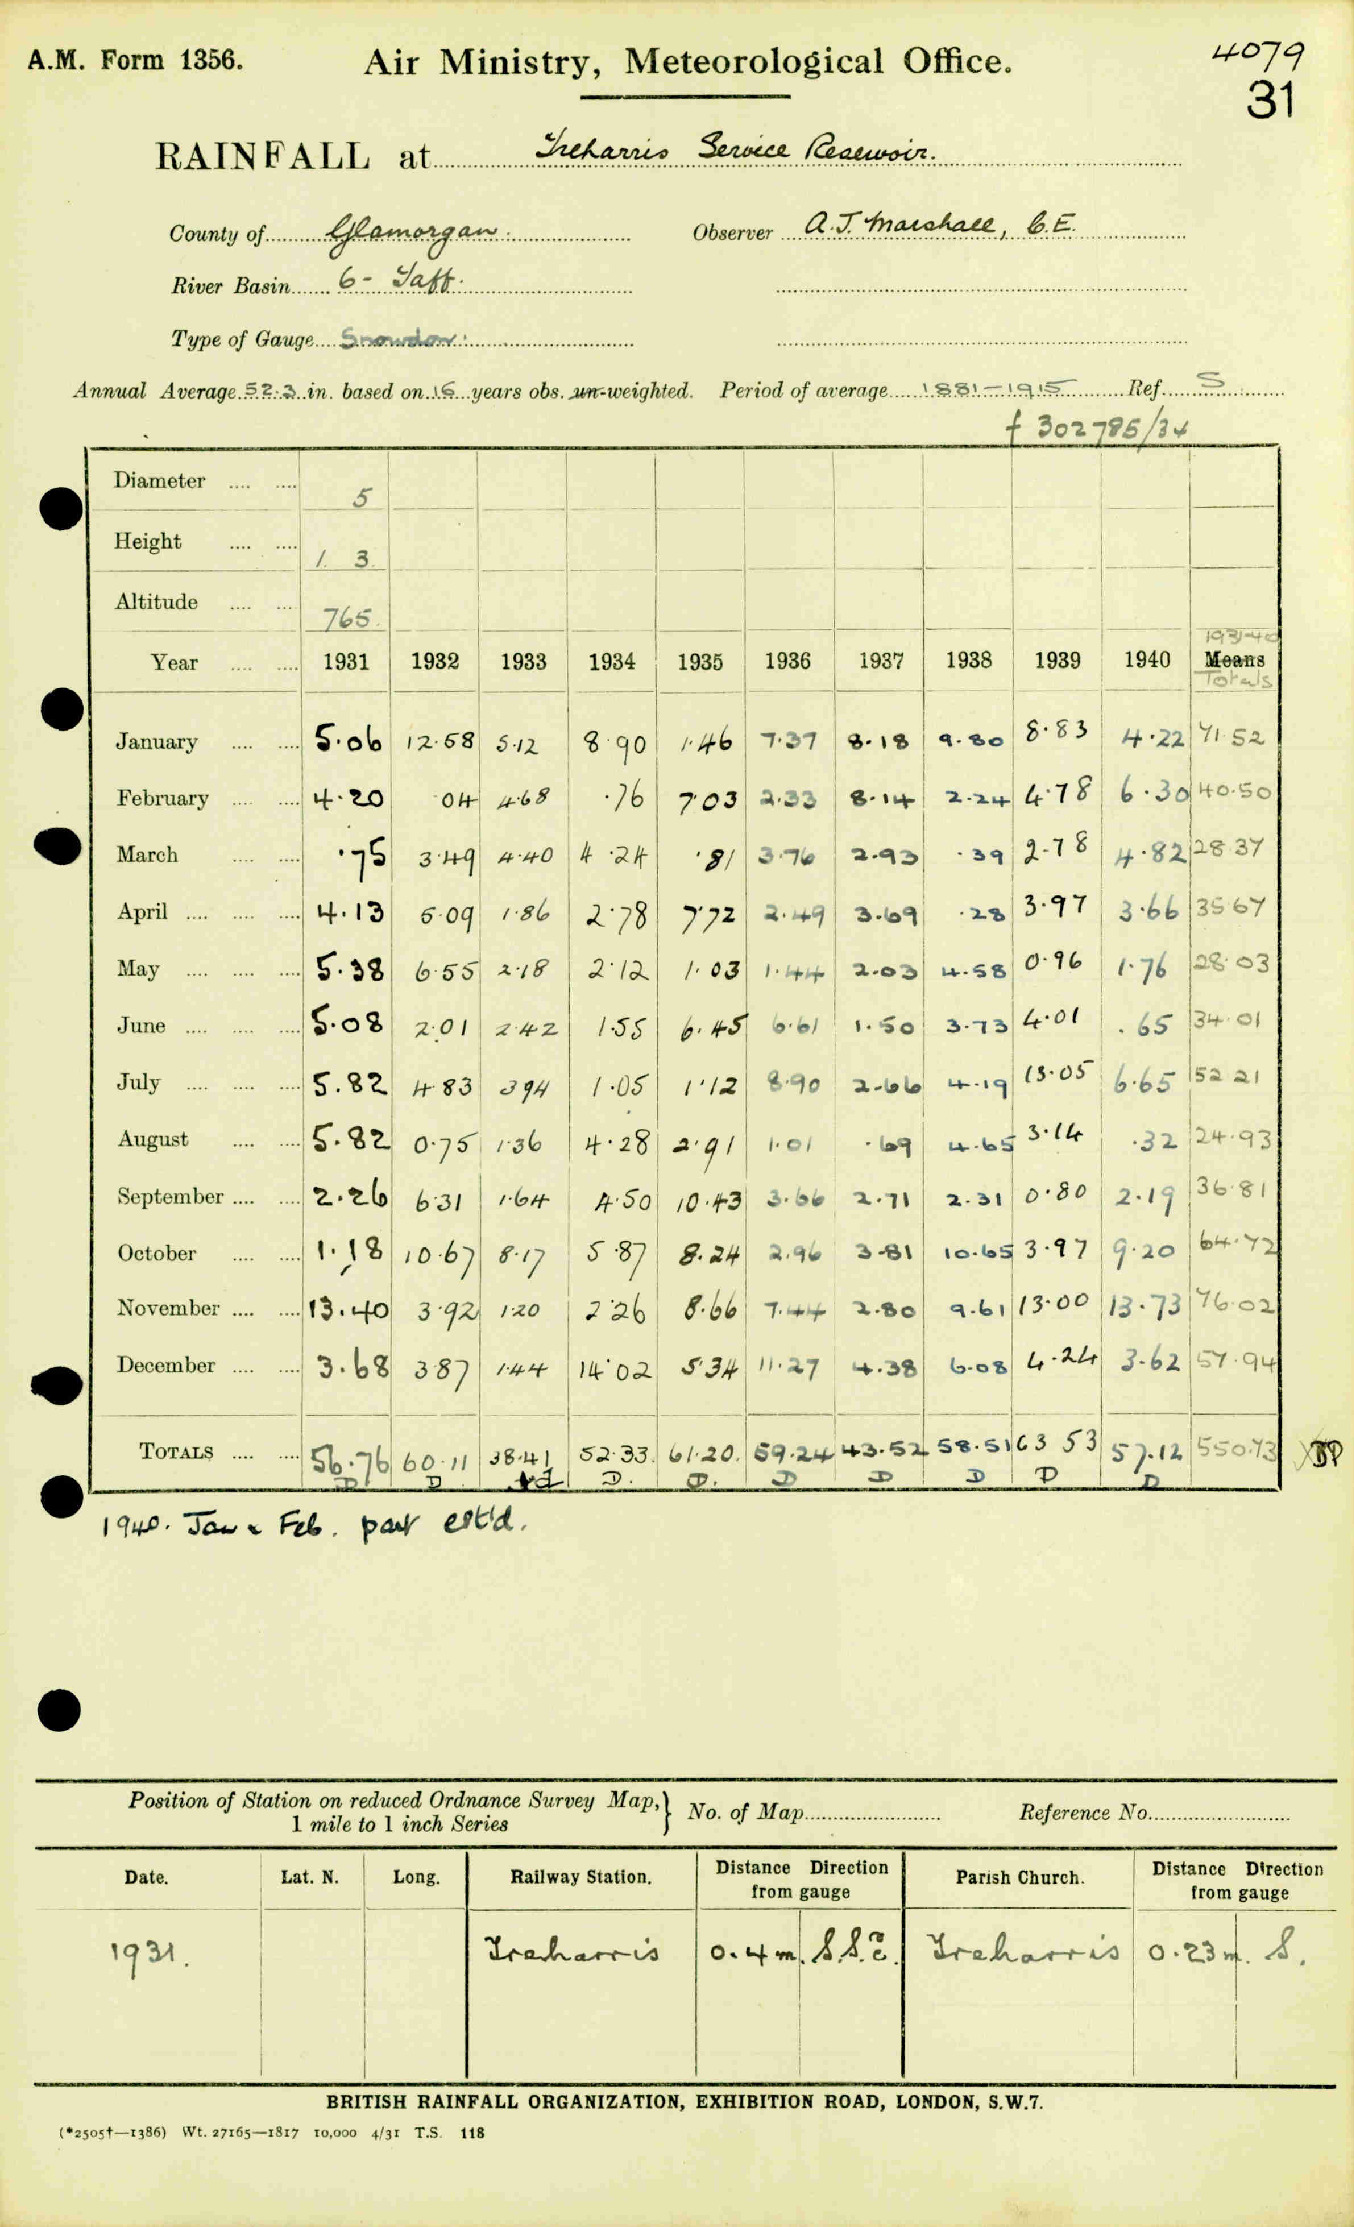 A.M. Form 1356.
Air Ministry, Meteorological Office.
4079
31
RAINFALL at Treharris Service Reservoir.
County of Glamorgan. Observer A.J. Marshall, C.E.
River Basin 6 - Taff.
Type of Gauge Snowdon.
Annual Average 52.3 in. based on 16 years obs. un-weighted. Period of average 1881-1915 Ref. S
f 302785/34
Diameter .... .... 5
Height .... .... 1. 3.
Altitude .... .... 765.
1931-40
Year .... .... 1931 1932 1933 1934 1935 1936 1937 1938 1939 1940 Means
Totals
January .... .... 5.06 12.58 5.12 8.90 1.46 7.37 8.18 9.80 8.83 4.22 71.52
February .... .... 4.20 .04 4.68 .76 7.03 2.33 8.14 2.24 4.78 6.30 40.50
March .... .... .75 3.49 4.40 4.24 .81 3.76 2.93 .39 2.78 4.82 28.37
April .... .... .... 4.13 5.09 1.86 2.78 7.72 2.49 3.69 .28 3.97 3.66 35.67
May .... .... .... 5.38 6.55 2.18 2.12 1.03 1.44 2.03 4.58 0.96 1.76 28.03
June .... .... .... 5.08 2.01 2.42 1.55 6.45 6.61 1.50 3.73 4.01 .65 34.01
July .... .... .... 5.82 4.83 3.94 1.05 1.12 8.90 2.66 4.19 13.05 6.65 52.21
August .... .... 5.82 0.75 1.36 4.28 2.91 1.01 .69 4.65 3.14 .32 24.93
September .... .... 2.26 6.31 1.64 4.50 10.43 3.66 2.71 2.31 0.80 2.19 36.81
October .... .... 1.18 10.67 8.17 5.87 8.24 2.96 3.81 10.65 3.97 9.20 64.72
November .... .... 13.40 3.92 1.20 2.26 8.66 7.44 2.80 9.61 13.00 13.73 76.02
December .... .... 3.68 3.87 1.44 14.02 5.34 11.27 4.38 6.08 4.24 3.62 57.94
TOTALS .... .... 56.76 60.11 38.41 52.33. 61.20. 59.24 43.52 58.51 63.53 57.12 550.73
D D D. D. D D D D D
1940. Jan & Feb. part est'd.
Position of Station on reduced Ordnance Survey Map, } No. of Map Reference No.
1 mile to 1 inch Series
Date. Lat. N. Long. Railway Station. Distance Direction from gauge Parish Church. Distance Direction from gauge
1931. Treharris 0.4 m. S.S.E. Treharris 0.23 m. S.
BRITISH RAINFALL ORGANIZATION, EXHIBITION ROAD, LONDON, S.W.7.
(*2505†—1386) Wt. 27165—1817 10,000 4/31 T.S. 118